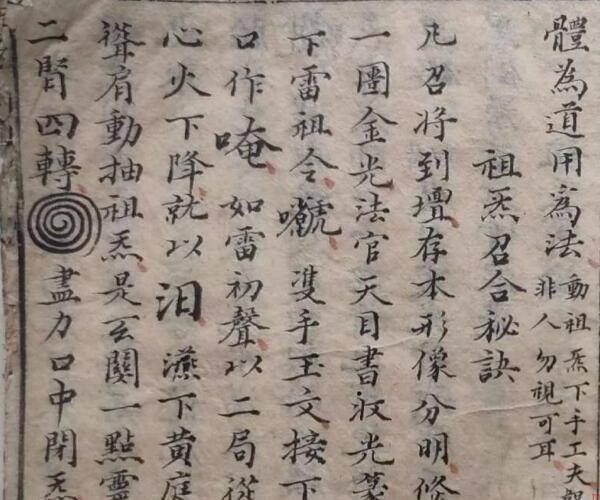 體為道用為法 動祖炁下手工夫
非人勿視可耳
祖炁召合秘訣
凡召將到壇存本形像分明
一團金光法官天目書收光篆
下雷祖令 雙手玉文接下
口作唵如雷初聲以二局從
心火下降就以汨 下黃庭
聳肩動抽祖炁是玄關一點靈
二腎四轉 盡力口中閉炁